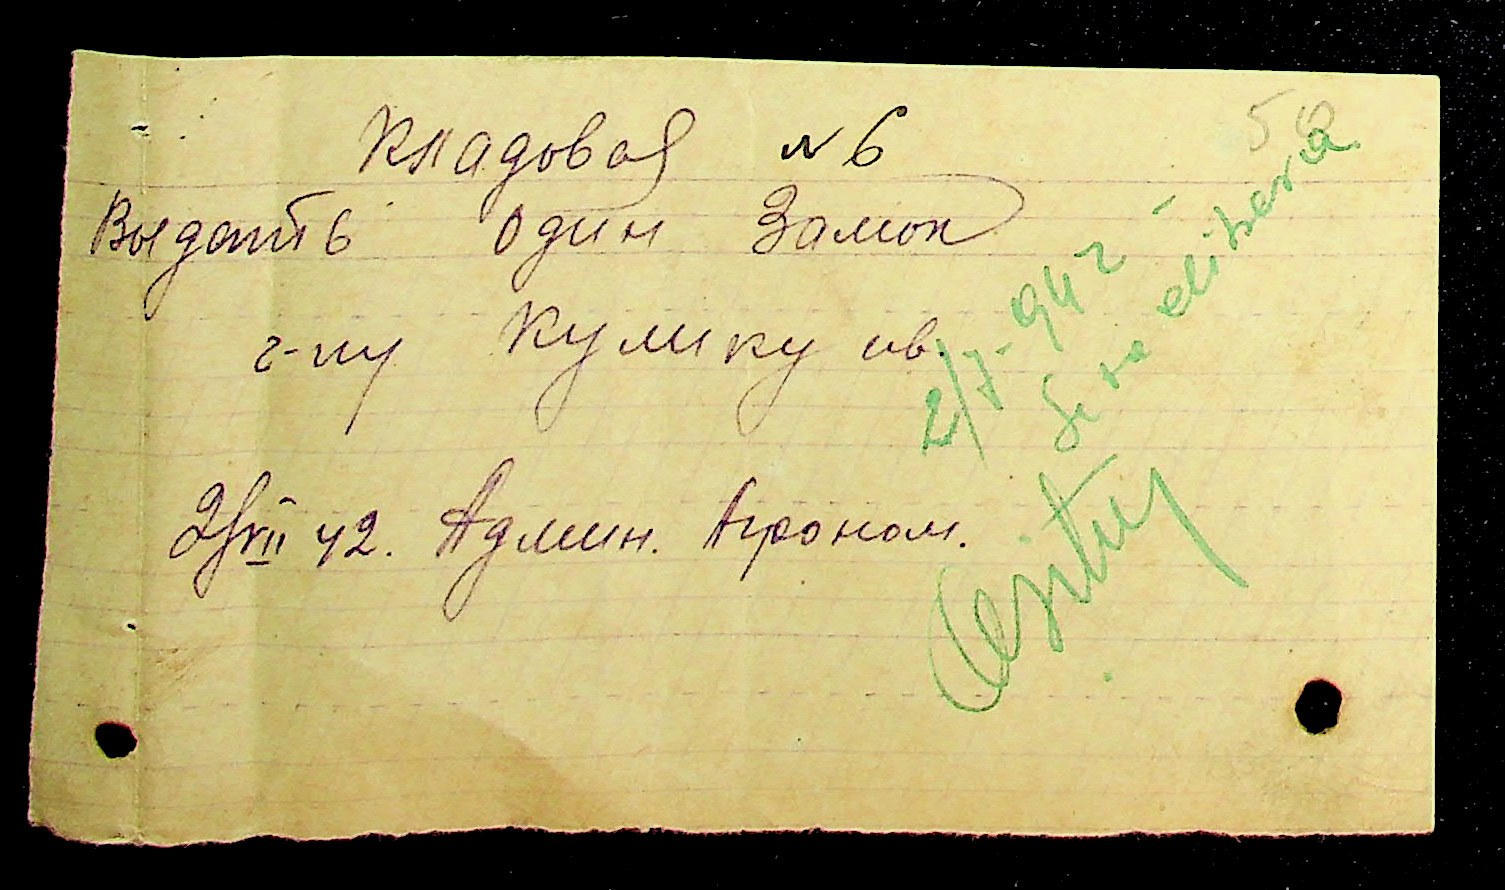 Кладовая № 6
Выдать один Замок
г-ну Кулику ив.
2/VII 42. Админ. Агроном.
58
2/7-942
Se va elibera